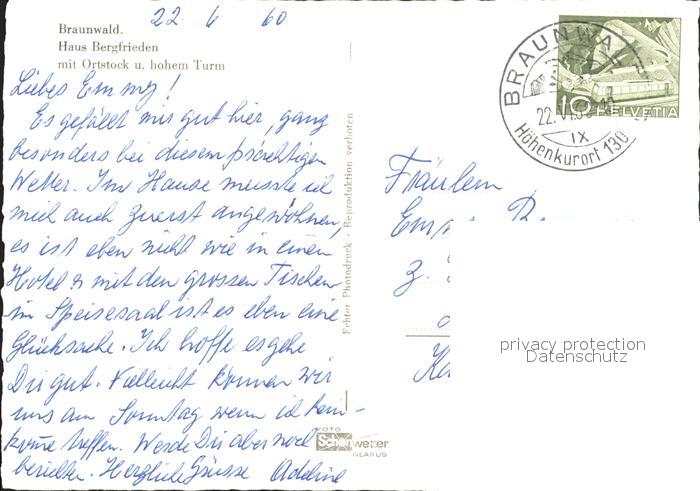 22. 6 60
Braunwald.
Haus Bergfrieden
mit Ortstock u. hohem Turm
Liebes Emmy!
Es gefällt mir gut hier, ganz
besonders bei diesem prächtigen
Wetter. Im Hause musste ich
mich auch zuerst angewöhnen,
es ist eben nicht wie in einem
Hotel & mit den grossen Tischen
im Speisesaal ist es eben eine
Glücksache. Ich hoffe es gehe
Dir gut. Vielleicht können wir
uns am Sonntag wenn ich heim-
komme treffen. Werde Dir aber noch
berichten. Herzliche Grüsse Adeline
Echter Photodruck Reproduktion verboten
FOTO
Schönwetter
GLARUS
BRAUNWALD
22. VI. 60
IX
Höhenkurort 1300
10 HELVETIA
Fräulein
privacy protection
Datenschutz